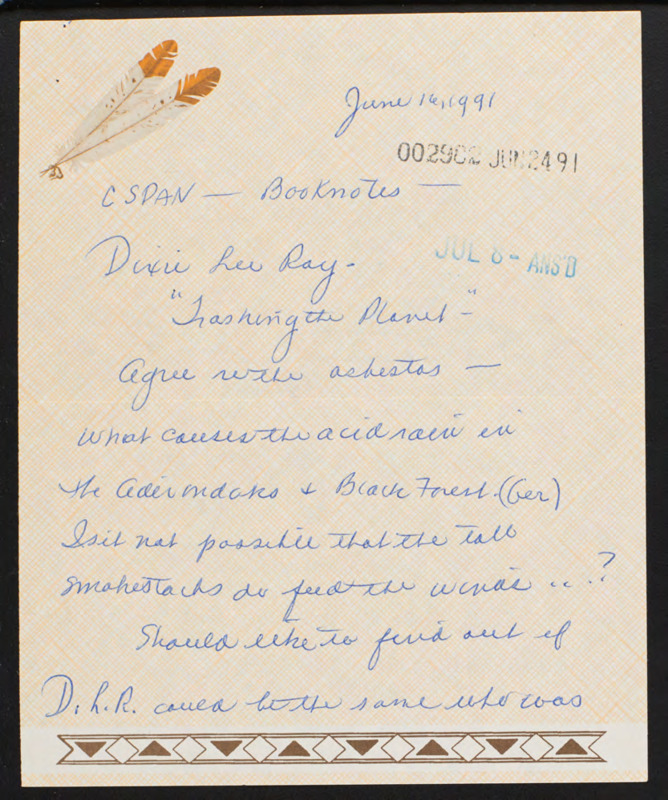 June 16, 1991
002902 JUN 24 91
CSPAN — Booknotes —
JUL 8 - ANS'D
Dixie Lee Ray -
"Trashing the Planet -"
Agree w the asbestos —
What causes the acid rain in
the Aderondaks & Black Forest. (Ger)
Is it not possible that the tall
smokestacks do feed the winds ...?
Should like to find out if
D. L. R. could be the same who was